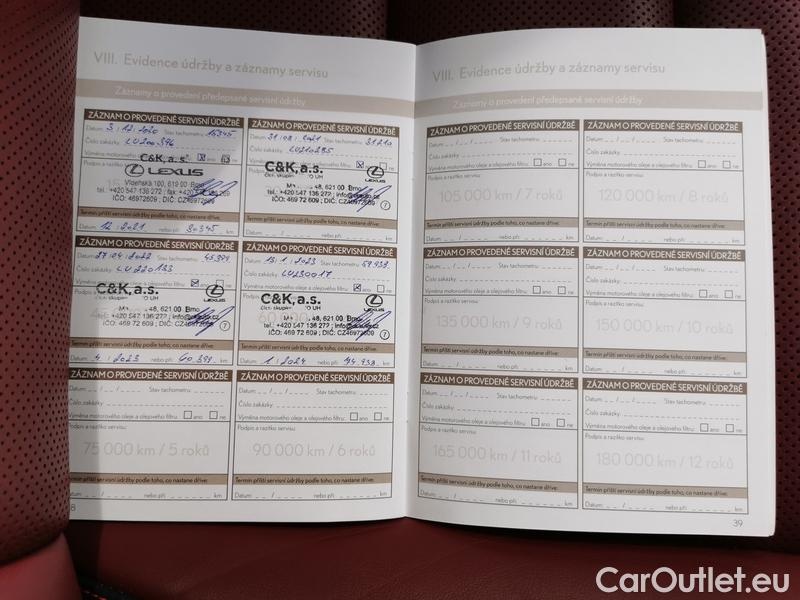 VIII. Evidence údržby a záznamy servisu
Záznamy o provedení předepsané servisní údržby
ZÁZNAM O PROVEDENÉ SERVISNÍ ÚDRŽBĚ
Datum 3 / 12 / 2020 Stav tachometru 15345
Číslo zakázky
Výměna motorového oleje
C&K, a. s.
LEXUS
Vídeňská 100, 619 00 Brno
tel.: +420 547 136 272
IČO: 46972609 ; DIČ: CZ46972609
Termín příští servisní údržby podle toho, co nastane dříve:
12 / 2021 nebo při 30345 km
ZÁZNAM O PROVEDENÉ SERVISNÍ ÚDRŽBĚ
Datum 31 / 08 / 2021 Stav tachometru 31210
Číslo zakázky LU210285
Výměna motorového oleje a olejového filtru: ano ne
C&K, a.s.
LEXUS
48, 621 00 Brno
tel.: +420 547 136 272
IČO: 469 72 609 ; DIČ: CZ46972609
Termín příští servisní údržby podle toho, co nastane dříve:
Datum nebo při km
ZÁZNAM O PROVEDENÉ SERVISNÍ ÚDRŽBĚ
27 / 04 / 2022 Stav tachometru 45399
Číslo zakázky LU220133
C&K, a.s.
LEXUS
48, 621 00 Brno
tel.: +420 547 136 272
IČO: 469 72 609 ; DIČ: CZ46972609
Termín příští servisní údržby podle toho, co nastane dříve:
4 / 2023 nebo při 60 399 km
ZÁZNAM O PROVEDENÉ SERVISNÍ ÚDRŽBĚ
Datum 13 / 1 / 2023 Stav tachometru 59938
Číslo zakázky LU230017
Výměna motorového oleje a olejového filtru: ano ne
C&K, a.s.
LEXUS
48, 621 00 Brno
tel.: +420 547 136 272
IČO: 469 72 609 ; DIČ: CZ46972609
Termín příští servisní údržby podle toho, co nastane dříve:
Datum 1 / 2024 nebo při 74.938 km
ZÁZNAM O PROVEDENÉ SERVISNÍ ÚDRŽBĚ
Datum Stav tachometru
Číslo zakázky
Výměna motorového oleje a olejového filtru: ano ne
Podpis a razítko servisu:
75 000 km / 5 roků
Termín příští servisní údržby podle toho, co nastane dříve:
Datum nebo při km
ZÁZNAM O PROVEDENÉ SERVISNÍ ÚDRŽBĚ
Datum Stav tachometru
Číslo zakázky
Výměna motorového oleje a olejového filtru: ano ne
Podpis a razítko servisu:
90 000 km / 6 roků
Termín příští servisní údržby podle toho, co nastane dříve:
Datum nebo při km
8
VIII. Evidence údržby a záznamy servisu
Záznamy o provedení předepsané servisní údržby
ZÁZNAM O PROVEDENÉ SERVISNÍ ÚDRŽBĚ
Datum Stav tachometru
Číslo zakázky
Výměna motorového oleje a olejového filtru: ano ne
Podpis a razítko servisu:
105 000 km / 7 roků
Termín příští servisní údržby podle toho, co nastane dříve:
Datum nebo při km
ZÁZNAM O PROVEDENÉ SERVISNÍ ÚDRŽBĚ
Datum Stav tachometru
Číslo zakázky
Výměna motorového oleje a olejového filtru: ano ne
Podpis a razítko servisu:
120 000 km / 8 roků
Termín příští servisní údržby podle toho, co nastane dříve:
Datum nebo při km
ZÁZNAM O PROVEDENÉ SERVISNÍ ÚDRŽBĚ
Datum Stav tachometru
Číslo zakázky
Výměna motorového oleje a olejového filtru: ano ne
Podpis a razítko servisu:
135 000 km / 9 roků
Termín příští servisní údržby podle toho, co nastane dříve:
Datum nebo při km
ZÁZNAM O PROVEDENÉ SERVISNÍ ÚDRŽBĚ
Datum Stav tachometru
Číslo zakázky
Výměna motorového oleje a olejového filtru: ano ne
Podpis a razítko servisu:
150 000 km / 10 roků
Termín příští servisní údržby podle toho, co nastane dříve:
Datum nebo při km
ZÁZNAM O PROVEDENÉ SERVISNÍ ÚDRŽBĚ
Datum Stav tachometru
Číslo zakázky
Výměna motorového oleje a olejového filtru: ano ne
Podpis a razítko servisu:
165 000 km / 11 roků
Termín příští servisní údržby podle toho, co nastane dříve:
Datum nebo při km
ZÁZNAM O PROVEDENÉ SERVISNÍ ÚDRŽBĚ
Datum Stav tachometru
Číslo zakázky
Výměna motorového oleje a olejového filtru: ano ne
Podpis a razítko servisu:
180 000 km / 12 roků
Termín příští servisní údržby podle toho, co nastane dříve:
Datum nebo při km
39
CarOutlet.eu